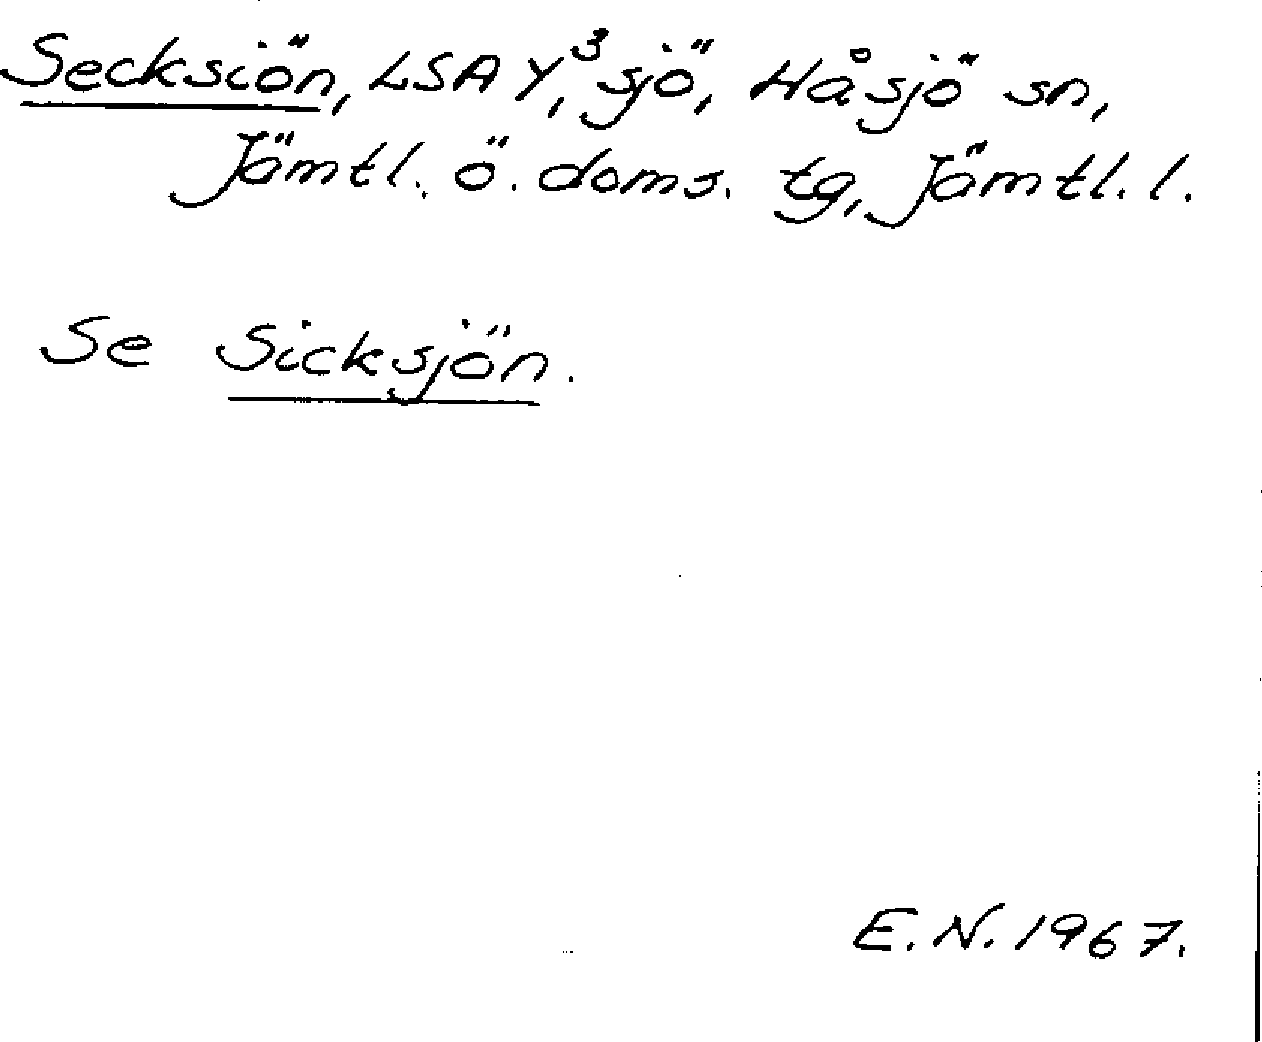 Secksiön, LSA Y,³ sjö, Håsjö sn,
Jämtl. ö. doms. tg, Jämtl. l.
Se Sicksjön.
E. N. 1967.